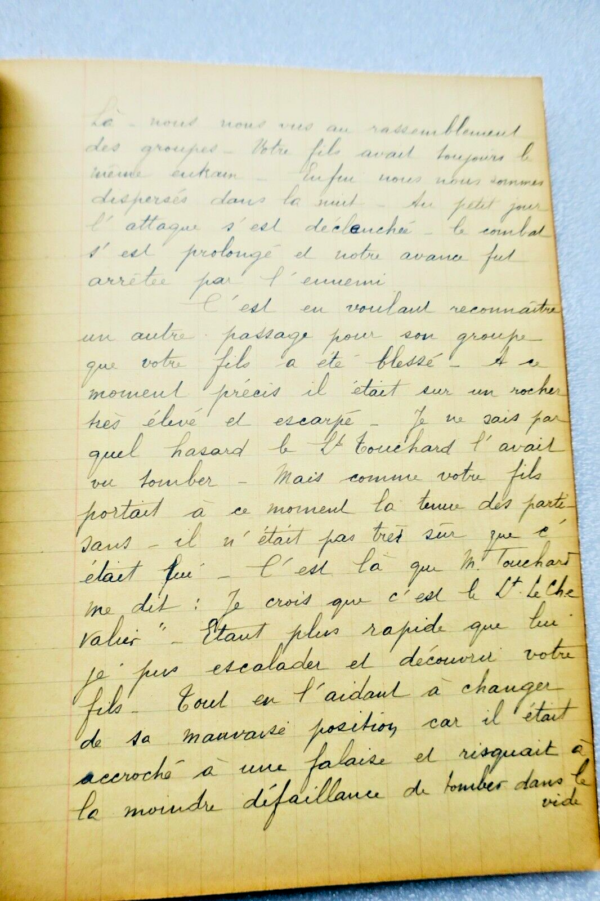 Là - nous nous vus au rassemblement
des groupes - Votre fils avait toujours le
même entrain - Enfin nous nous sommes
dispersés dans la nuit - Au petit jour
l'attaque s'est déclenchée - le combat
s'est prolongé et notre avance fut
arrêtée par l'ennemi
C'est en voulant reconnaître
un autre passage pour son groupe
que votre fils a été blessé - A ce
moment précis il était sur un rocher
très élevé et escarpé - Je ne sais par
quel hasard le Lt Touchard l'avait
vu tomber - Mais comme votre fils
portait à ce moment la tenue des parti-
sans - il n'était pas très sûr que c'
était lui - C'est là que M. Touchard
me dit : Je crois que c'est le Lt. Le Che
valier" - Etant plus rapide que lui
je pus escalader et découvrir votre
fils - Tout en l'aidant à changer
de sa mauvaise position car il était
accroché à une falaise et risquait à
la moindre défaillance de tomber dans le
vide